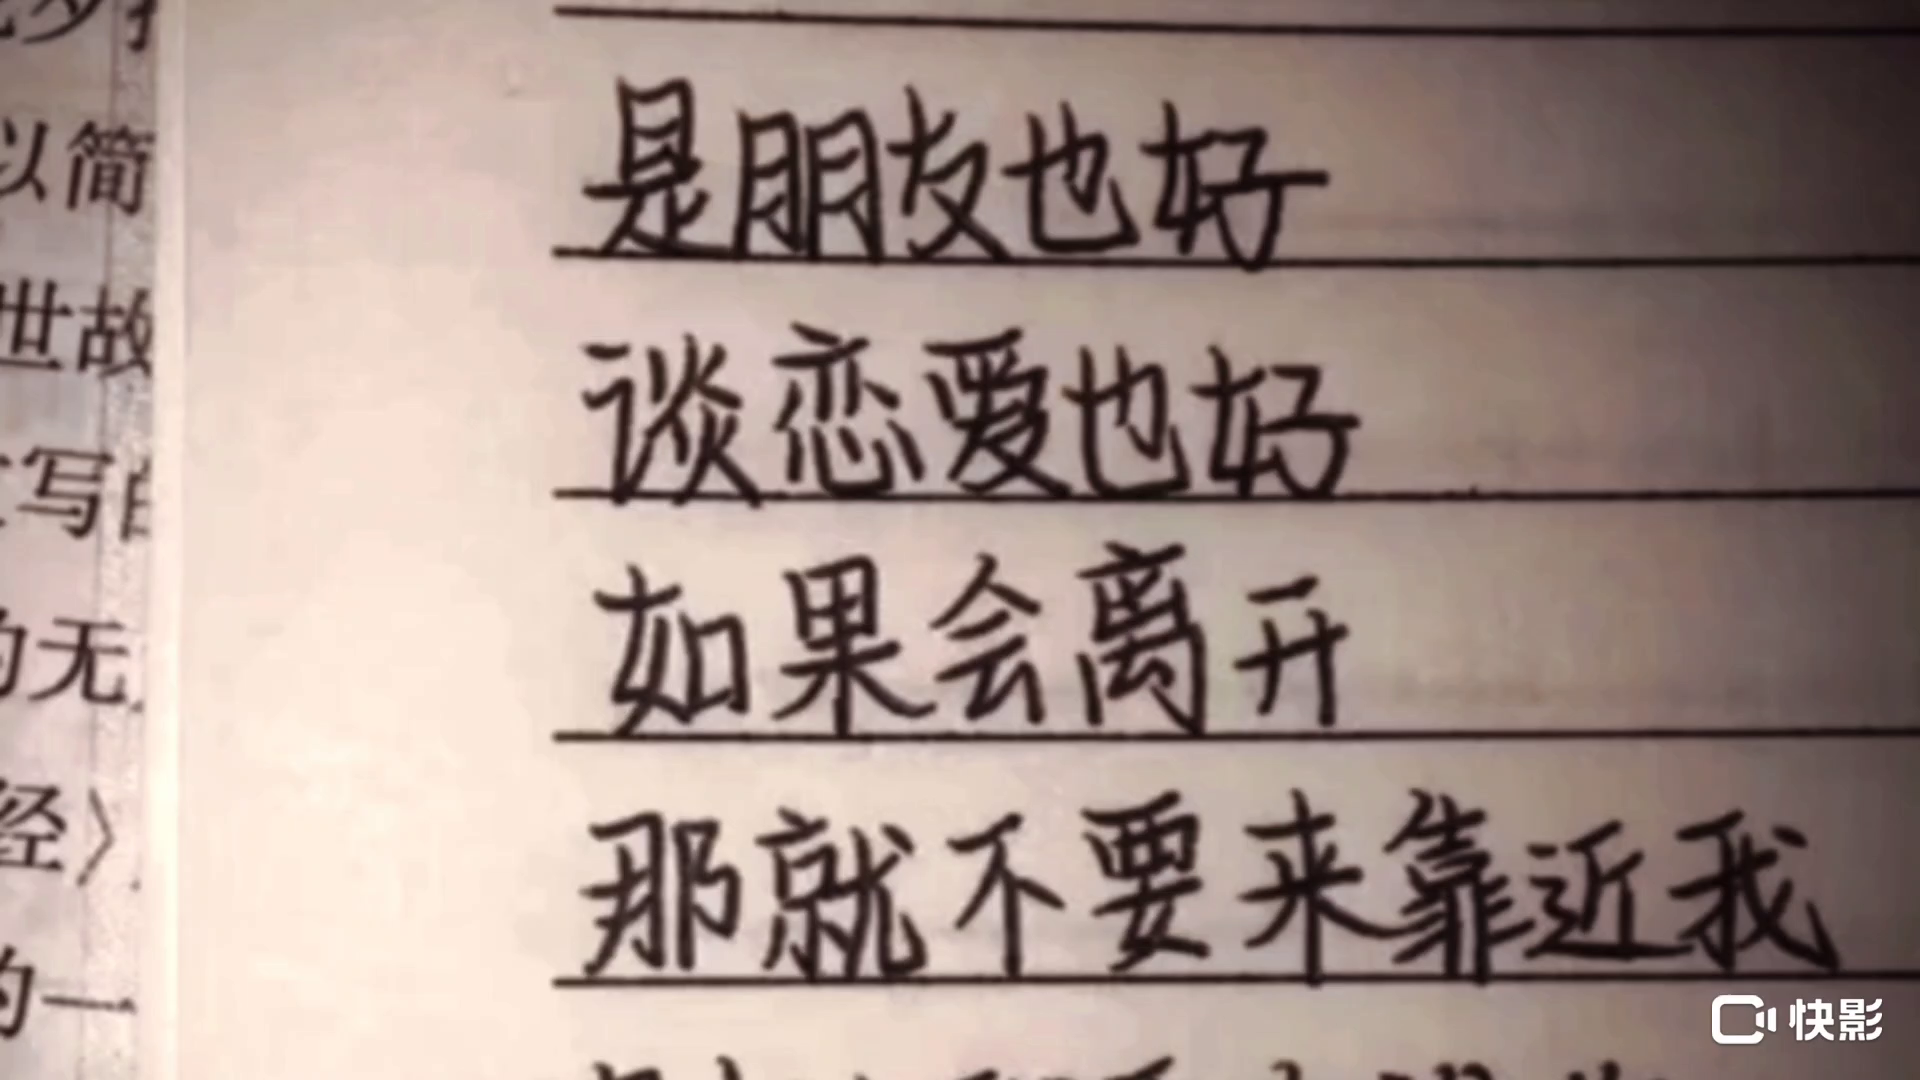 以简
世故
写
无
经〉
的一
是朋友也好
谈恋爱也好
如果会离开
那就不要来靠近我
快影